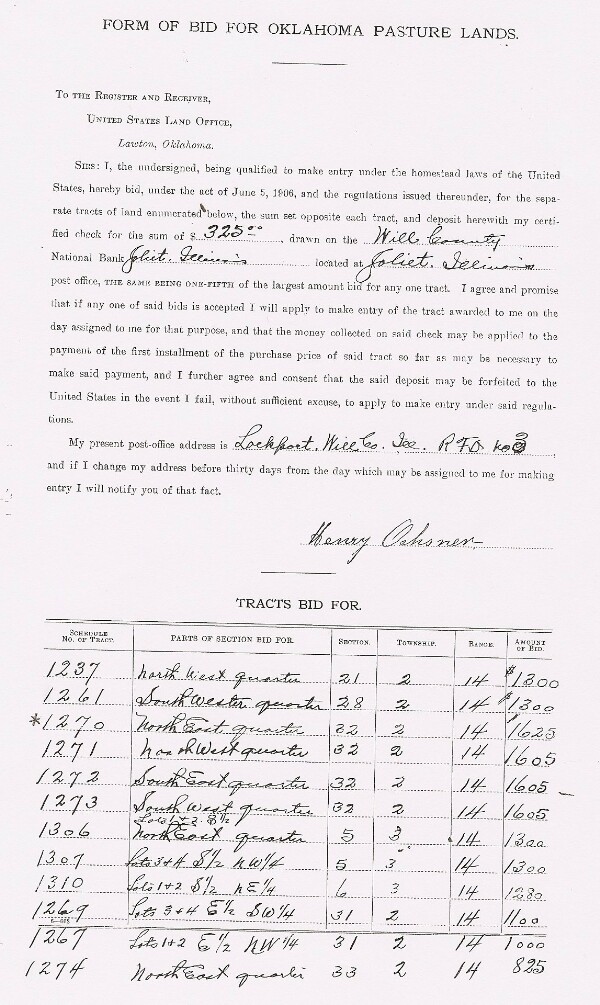 FORM OF BID FOR OKLAHOMA PASTURE LANDS.
TO THE REGISTER AND RECEIVER,
UNITED STATES LAND OFFICE,
Lawton, Oklahoma.
SIRS: I, the undersigned, being qualified to make entry under the homestead laws of the United
States, hereby bid, under the act of June 5, 1906, and the regulations issued thereunder, for the sepa-
rate tracts of land enumerated below, the sum set opposite each tract, and deposit herewith my certi-
fied check for the sum of $ 325 00, drawn on the Will County
National Bank Joliet. Illinois located at Joliet. Illinois
post office, THE SAME BEING ONE-FIFTH of the largest amount bid for any one tract. I agree and promise
that if any one of said bids is accepted I will apply to make entry of the tract awarded to me on the
day assigned to me for that purpose, and that the money collected on said check may be applied to the
payment of the first installment of the purchase price of said tract so far as may be necessary to
make said payment, and I further agree and consent that the said deposit may be forfeited to the
United States in the event I fail, without sufficient excuse, to apply to make entry under said regula-
tions.
My present post-office address is Lockport. Will Co. Ill. R F D No 3
and if I change my address before thirty days from the day which may be assigned to me for making
entry I will notify you of that fact.
Henry Ochsner
TRACTS BID FOR.
SCHEDULE NO. OF TRACT. PARTS OF SECTION BID FOR. SECTION. TOWNSHIP. RANGE. AMOUNT OF BID.
1237 North West quarter 21 2 14 $1300
1261 South Wester quarter 28 2 14 $1300
*1270 North East quarter 32 2 14 $1625
1271 North West quarter 32 2 14 1605
1272 South East quarter 32 2 14 1605
1273 South West quarter 32 2 14 1605
Lots 1+2 S 1/2
1306 North East quarter 5 3 14 1300
1307 Lots 3+4 S 1/2 NW 1/4 5 3 14 1300
1310 Lots 1+2 S 1/2 NE 1/4 6 3 14 1280
1269 Lots 3+4 E 1/2 SW 1/4 31 2 14 1100
1267 Lots 1+2 E 1/2 NW 1/4 31 2 14 1000
1274 North East quarter 33 2 14 825